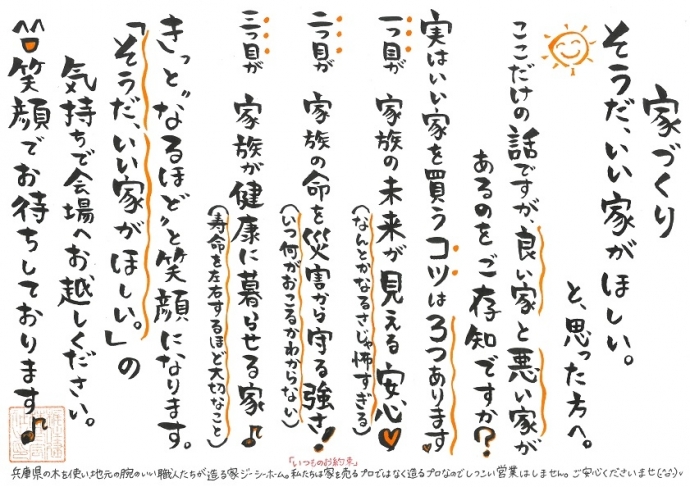 家づくり
そうだ、いい家がほしい。
と、思った方へ。
ここだけの話ですが、良い家と悪い家が
あるのをご存知ですか?
実はいい家を買うコツは3つあります♥
一つ目が 家族の未来が見える安心♥
(なんとかなるさじゃ怖すぎる)
二つ目が 家族の命を災害から守る強さ!
(いつ何がおこるかわからない)
三つ目が 家族が健康に暮らせる家♪
(寿命を左右するほど大切なこと)
きっと"なるほど"と笑顔になります。
「そうだ、いい家がほしい。」の
気持ちで会場へお越しください。
笑顔でお待ちしております♪
「いつものお約束」
兵庫県の木を使い地元の腕のいい職人たちが造る家ジーシーホーム。私たちは家を売るプロではなく造るプロなのでしつこい営業はしません。ご安心くださいませ(^^)v